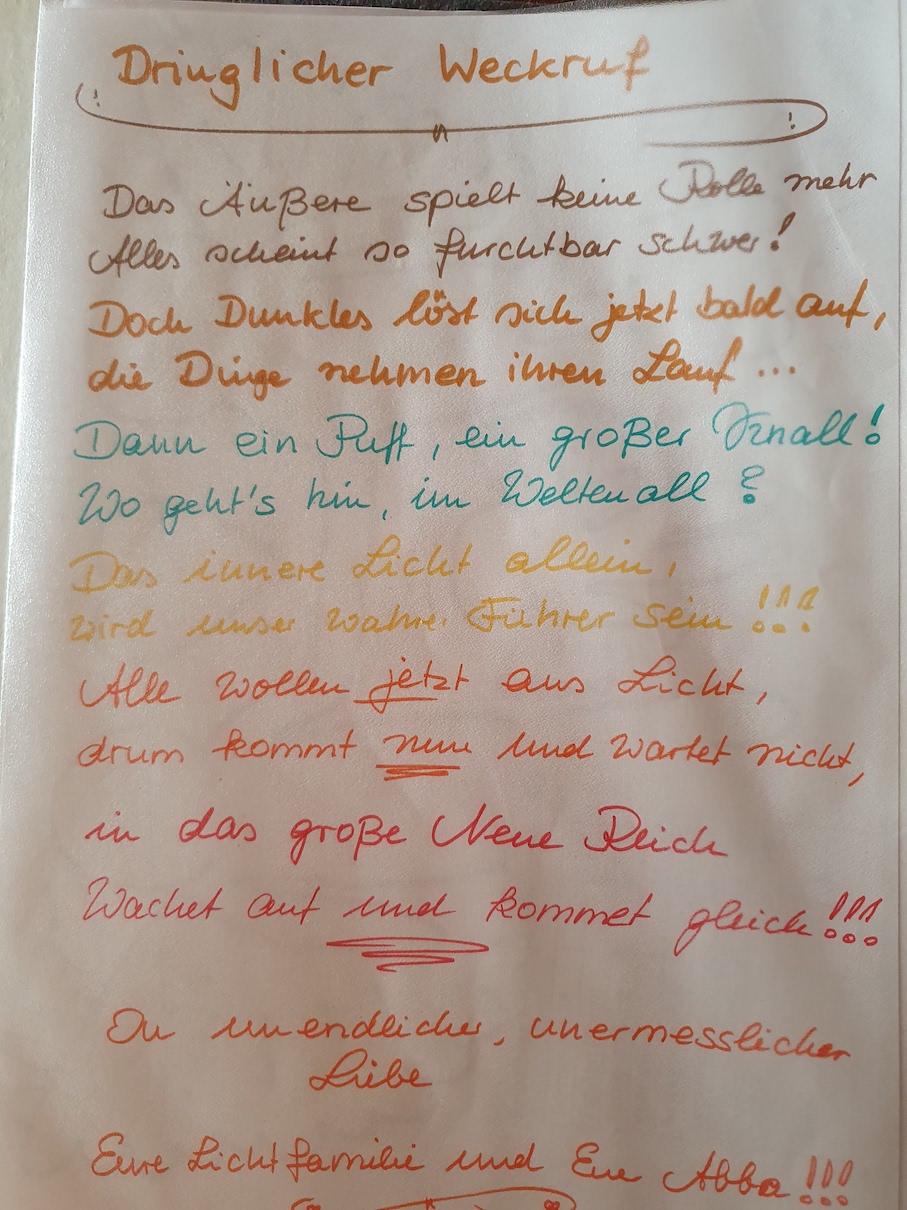 Dringlicher Weckruf
! !
Das Äußere spielt keine Rolle mehr
Alles scheint so furchtbar schwer!
Doch Dunkles löst sich jetzt bald auf,
die Dinge nehmen ihren Lauf...
Dann ein Puff, ein großer Knall!
Wo geht's hin, im Weltenall?
Das innere Licht allein,
wird unser wahrer Führer sein!!!
Alle wollen jetzt ans Licht,
drum kommt nun und wartet nicht,
in das große Neue Reich
Wachet auf und kommet gleich!!!
In unendlicher, unermesslicher
Liebe
Eure Lichtfamilie und Eue Abba!!!